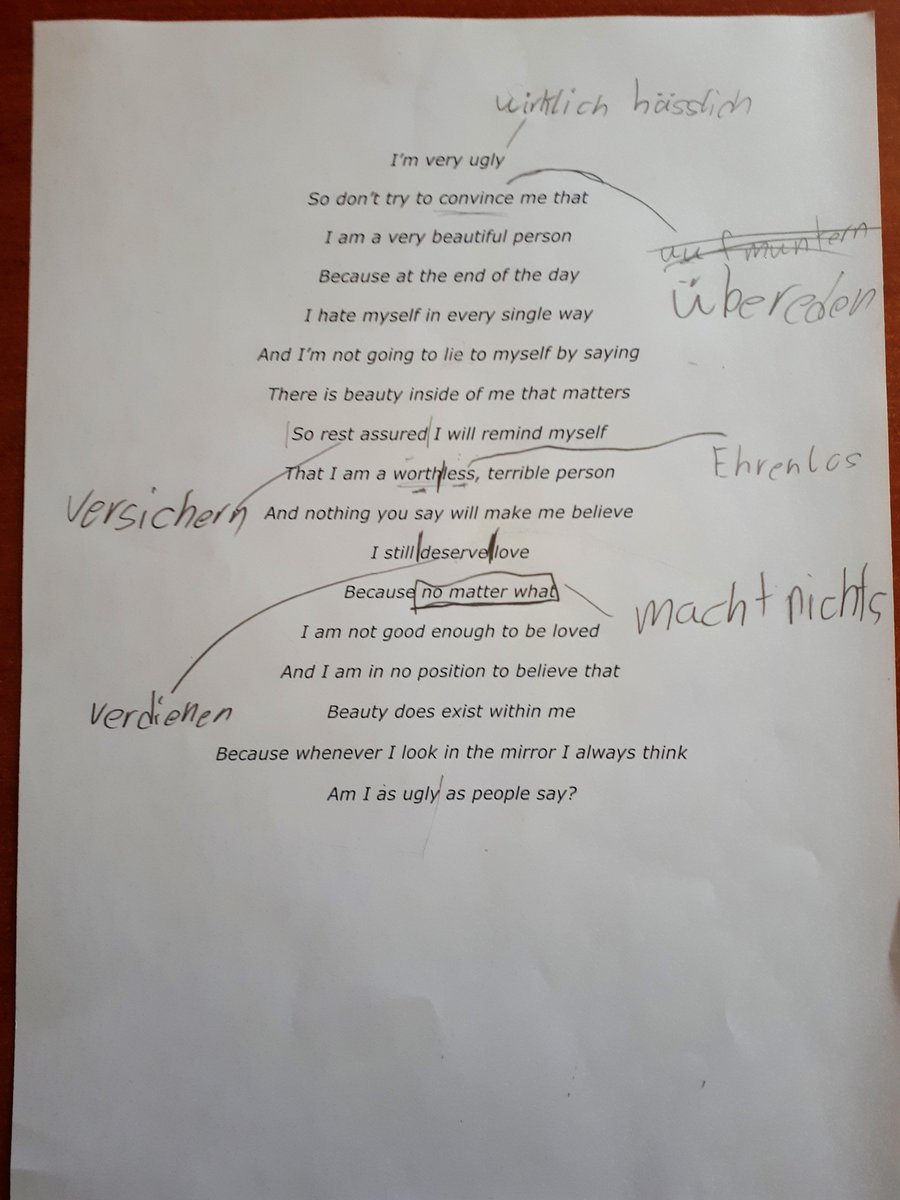 wirklich hässlich
I'm very ugly
So don't try to convince me that
aufmuntern
I am a very beautiful person
Because at the end of the day
überreden
I hate myself in every single way
And I'm not going to lie to myself by saying
There is beauty inside of me that matters
So rest assured I will remind myself
Ehrenlos
That I am a worthless, terrible person
versichern
And nothing you say will make me believe
I still deserve love
Because no matter what
macht nichts
I am not good enough to be loved
And I am in no position to believe that
verdienen
Beauty does exist within me
Because whenever I look in the mirror I always think
Am I as ugly as people say?